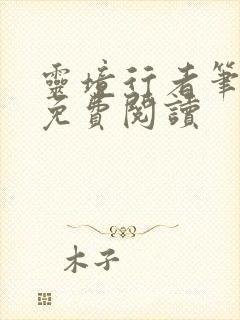 靈境行者筆
免費閱讀
木子